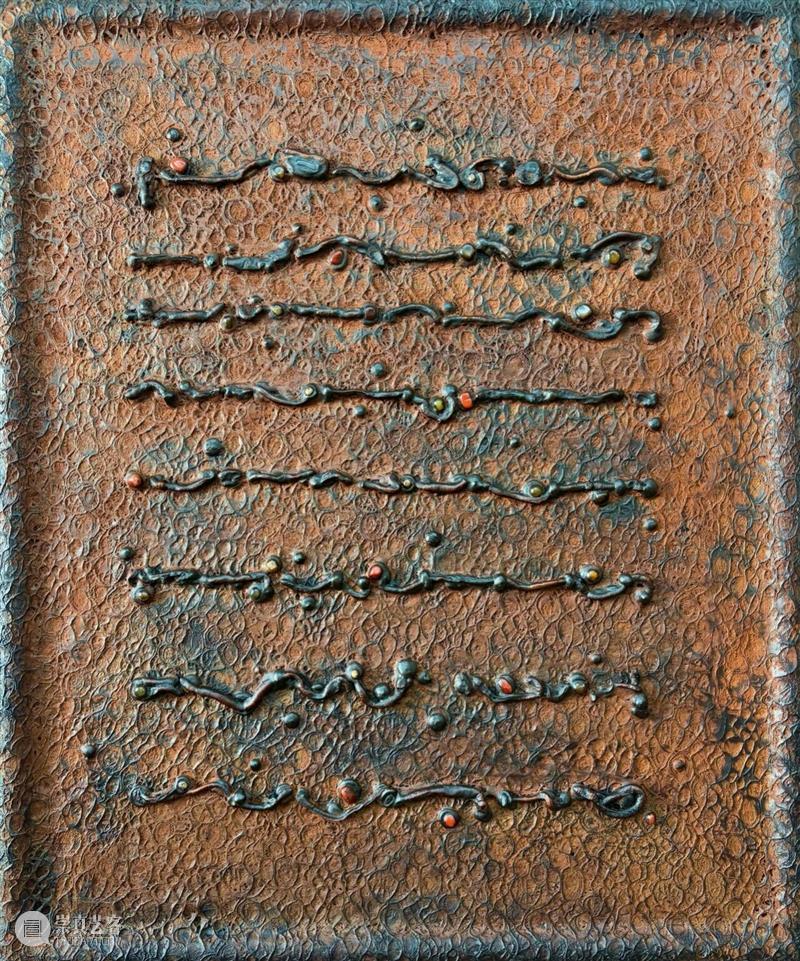 崇真艺客